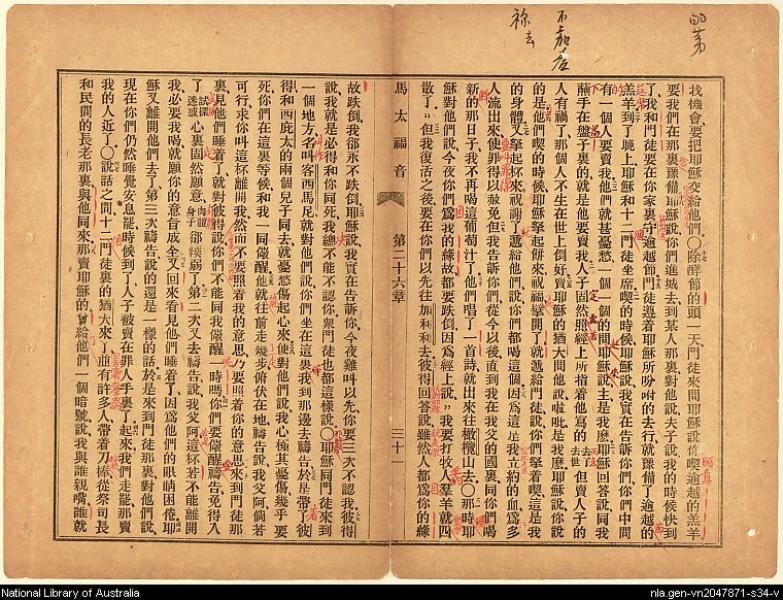 找機會要把耶穌交給他們〇除酵節的頭一天門徒來問耶穌說你喫逾越的羔羊
要我們在那裏豫備耶穌說你們進城去到某人那裏對他說夫子說我的時候快到
了我和門徒要在你家裏守逾越節門徒遵着耶穌所吩咐的去行就豫備了逾越的
羔羊到了晚上耶穌和十二門徒坐席喫的時候耶穌說我實在告訴你們你們中間
有一個人要賣我他們就甚憂愁一個一個的問耶穌說主是我麼耶穌回答說同我
蘸手在盤子裏的就是他要賣我人子固然照經上所指着他寫的去世但賣人子的
人有禍了那個人不生在世上倒好賣耶穌的猶大問他說啦吡是我麼耶穌說你說
的是他們喫的時候耶穌拏起餅來祝福擘開了就遞給門徒說你們拏着喫這是我
的身體又拏起杯來祝謝了遞給他們說你們都喝這個因爲這是我立約的血爲多
人流出來使罪得以赦免但我告訴你們從今以後直到我在我父的國裏同你們喝
新的那日子我不再喝這葡萄汁了他們唱了一首詩就出來往橄欖山去〇那時耶
穌對他們說今夜你們爲我的緣故都要跌倒因爲經上說我要打牧人羣羊就四
散了但我復活之後要在你們以先往加利利去彼得回答說雖然人都爲你的緣
馬太福音
第二十六章
三十一
故跌倒我卻永不跌倒耶穌說我實在告訴你今夜雞叫以先你要三次不認我彼得
說我就是必得和你同死我總不能不認你衆門徒也都這樣說〇耶穌同門徒來到
一個地方名叫客西馬尼就對他們說你們坐在這裏我到那邊去禱告於是帶了彼
得和西庇太的兩個兒子同去就憂愁傷起心來便對他們說我心極其憂傷幾乎要
死你們在這裏等候和我一同儆醒他就往前走幾步俯伏在地禱告說我父阿倘若
可行求你叫這杯離開我然而不要照着我的意思乃要照着你的意思來到門徒那
裏見他們睡着了就對彼得說你們不能同我儆醒一時嗎你們要儆醒禱告免得入
了試探迷惑心裏固然願意肉體身子卻輭弱了第二次又去禱告說我父阿這杯若不能離開
我必要我喝就願你的意旨成全又回來看見他們睡着了因爲他們的眼睛困倦耶
穌又離開他們去了第三次禱告說的還是一樣的話於是來到門徒那裏對他們說
現在你們仍然睡覺安息罷時候到了人子被賣在罪人手裏了起來我們走罷那賣
我的人近了〇說話之間十二門徒裏的猶大來了並有許多人帶着刀棒從祭司長
和民間的長老那裏與他同來那賣耶穌的曾給他們一個暗號說我與誰親嘴誰就
National Library of Australia
nla.gen-vn2047871-s34-v